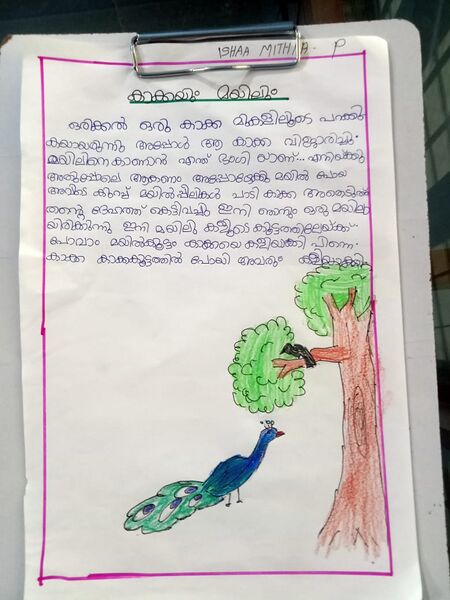 ISHAA MITHRA. P
കാക്കയും മയിലും
ഒരിക്കൽ ഒരു കാക്ക മുകളിലൂടെ പറക്കു
കയായിരുന്നു അപ്പോൾ ആ കാക്ക വിജാരിച്ചു
മയിലിനെ കാണാൻ എന്ത് ഭംഗി യാണ്... എനിക്കും
അതുപോലെ ആകണം അപ്പോഴേക്കു മയിൽ പോയ
അവിടെ കുറച്ച് മയിൽപീലികൾ പാടി കാക്ക അതെടുത്ത്
തന്റെ ദേഹത്ത് കെട്ടിവച്ചു ഇനി ഞാനും ഒരു മയിലാ
യിരിക്കുന്നു ഇനി മയിലു കളുടെ കൂട്ടത്തിലേയ്ക്ക്
പോവാം മയിൽകൂട്ടം കാക്കയെ കളിയാക്കി പിന്നെ
കാക്ക കാക്കകൂട്ടത്തിൽ പോയി അവരും കളിയാക്കി